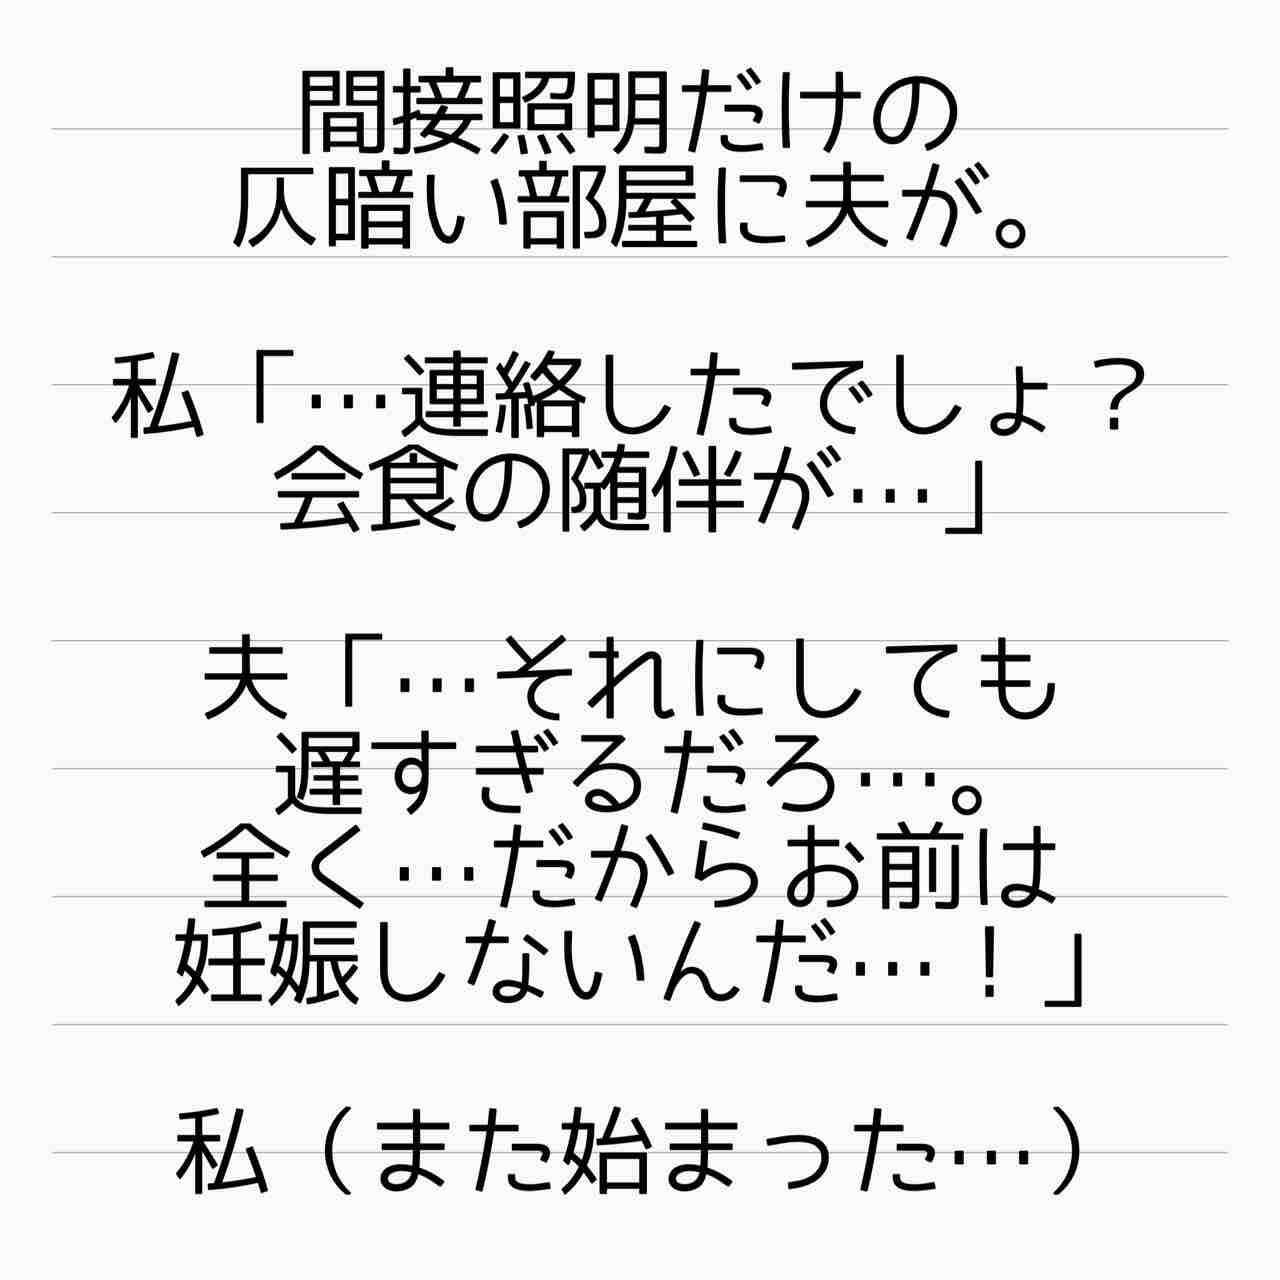 間接照明だけの
仄暗い部屋に夫が。
私「…連絡したでしょ？
会食の随伴が…」
夫「…それにしても
遅すぎるだろ…。
全く…だからお前は
妊娠しないんだ…！」
私（また始まった…）